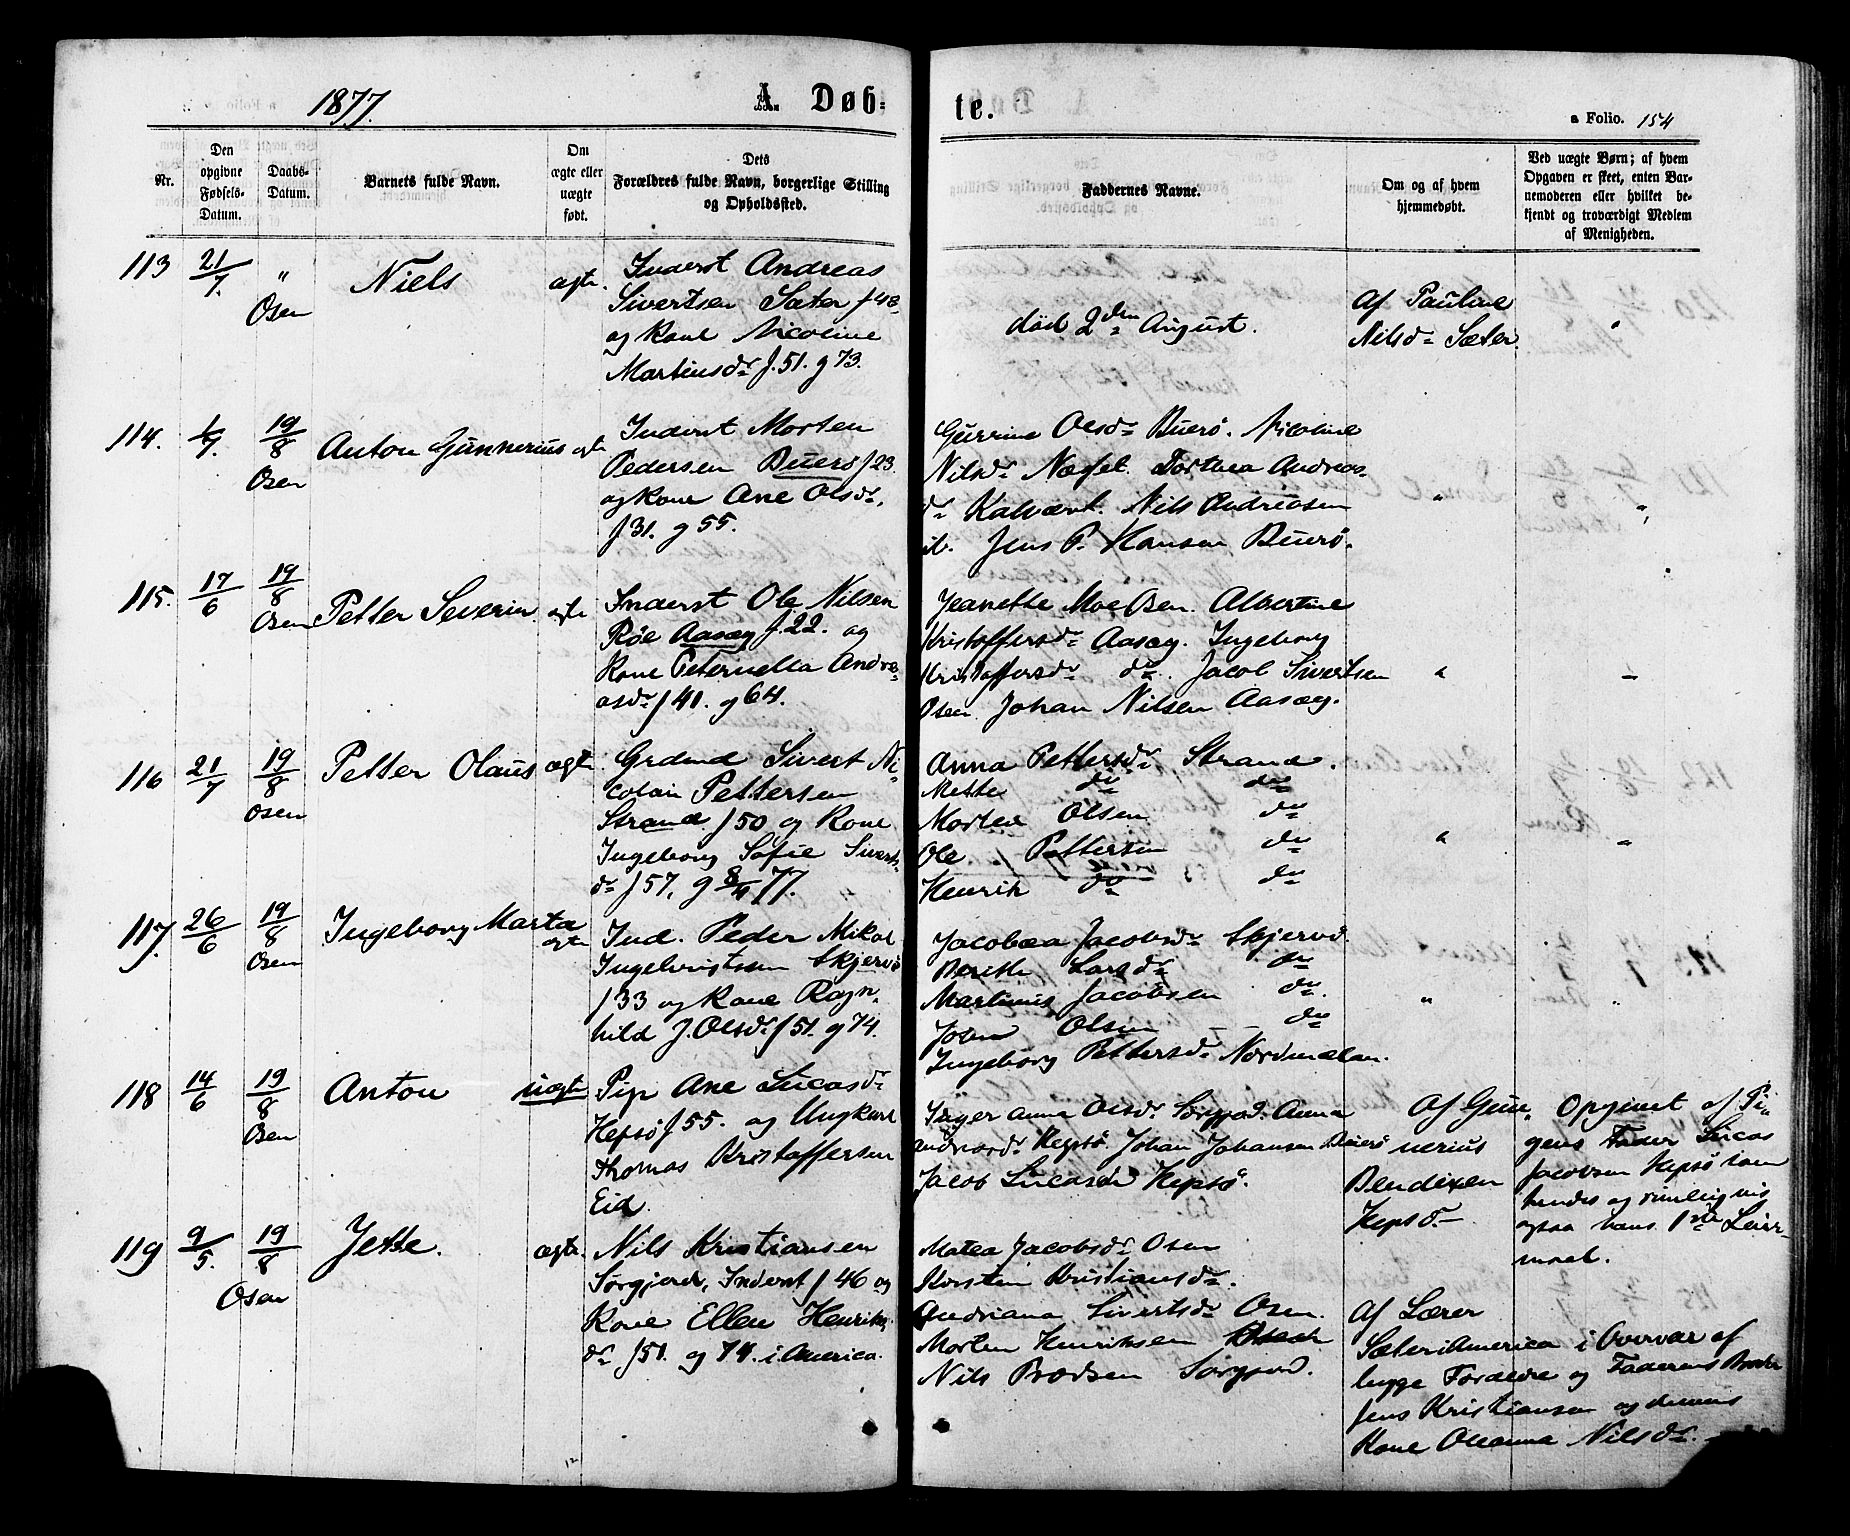 1877.
A. Døb-
te.
a Folio. 154
Nr.
Den
opgivne
Fødsels-
Datum.
Daabs-
Datum.
Barnets fulde Navn.
Om
ægte eller
uægte
født.
Dets
Forældres fulde Navn, borgerlige Stilling
og Opholdssted.
Faddernes Navne.
Om og af hvem
hjemmedøbt.
Ved uægte Børn; af hvem
Opgaven er skeet, enten Bar-
nemoderen eller hvilket be-
kjendt og troværdigt Medlem
af Menigheden.
113 21/7. " Osen
Niels
ægte.
Inderst Andreas
Sivertsen Sæter f 48
og Kone Nicoline
Martinsdr f. 51. g 73.
død 2den August.
Af Pauline
Nilsdr Sæter.
114. 19/8 Osen
Anton Gunnerius ægte
Inderst Morten
Pedersen Buerø f 23.
og Kone Ane Olsdr.
f 31. g 55.
Gurrine Olsdr Buerø. Nicoline
Nilsdr Dorthea Andreas-
dr Nils Andreasen
Jens P. Hansen Buerø.
115. 17/6 19/8 Osen
Petter Severin. ægte
Inderst Ole Nilsen
Røe Aasæg f. 22. og
Kone Peternella Andre-
asdr f 41. g 64.
Jeanette Moe Osen. Albertine
Kristoffersdr Aasæg. Ingeborg
Kristoffersdr do. Jacob Sivertsen
Osen. Johan Nilsen Aasæg.
116 21/7 19/8 Osen
Petter Olaus ægte
Grdmd Sivert Ni-
colai Pettersen
Strand f 50 og Kone
Ingeborg Sofie Siverts-
dr f 57, g 8/4 77.
Anna Pettersdr Strand.
Mette do do
Morten Olsen do
Ole Pettersen do
Henrik do do
117. 26/6 19/8 Osen
Ingeborg Marta
ægte
Ind. Peder Mikal
Ingebrigtsen Skjervø
f 33 og Kone Ragn-
hild J. Olsdr f 51. g 74.
Jacobæa Jacobsdr Skjervø.
Berith Larsdr do
Martinus Jacobsen do.
Johan Olsen do
Ingeborg Pettersdr Nordmelan.
118 14/6 19/8 Osen
Anton uægte
Pige Ane Lucasdr
Hepsø f 55. og Ungkarl
Thomas Kristoffersen
Eid.
Inger Anna Olsdr Sørgjød. Anna
Andreasdr Hepsø Johan Johansen Buerø
Jacob Lucassen Hepsø.
Af Gun-
nerius
Bendixen
Hepsø.
Opgivet af Pi-
gens Fader Lucas
Jacobsen Hepsø som
hendes og rimeligvis
ogsaa hans 1ste Leier-
maal.
119 9/5. 19/8 Osen
Jette.
ægte.
Nils Kristiansen
Sørgjerd, Inderst f 46 og
Kone Ellen Henriks-
dr f 51. og 74. i America.
Matea Jacobsdr Osen
Kersten Kristiansdr.
Andriana Sivertsdr Osen.
Morten Henriksen
Nils Sørgjerd.
Af Lærer
Sæter i America i Overvær af
begge Forældre og Faderens Broder
Jens Kristiansen og dennes
Kone Oleanna Nilsdr.